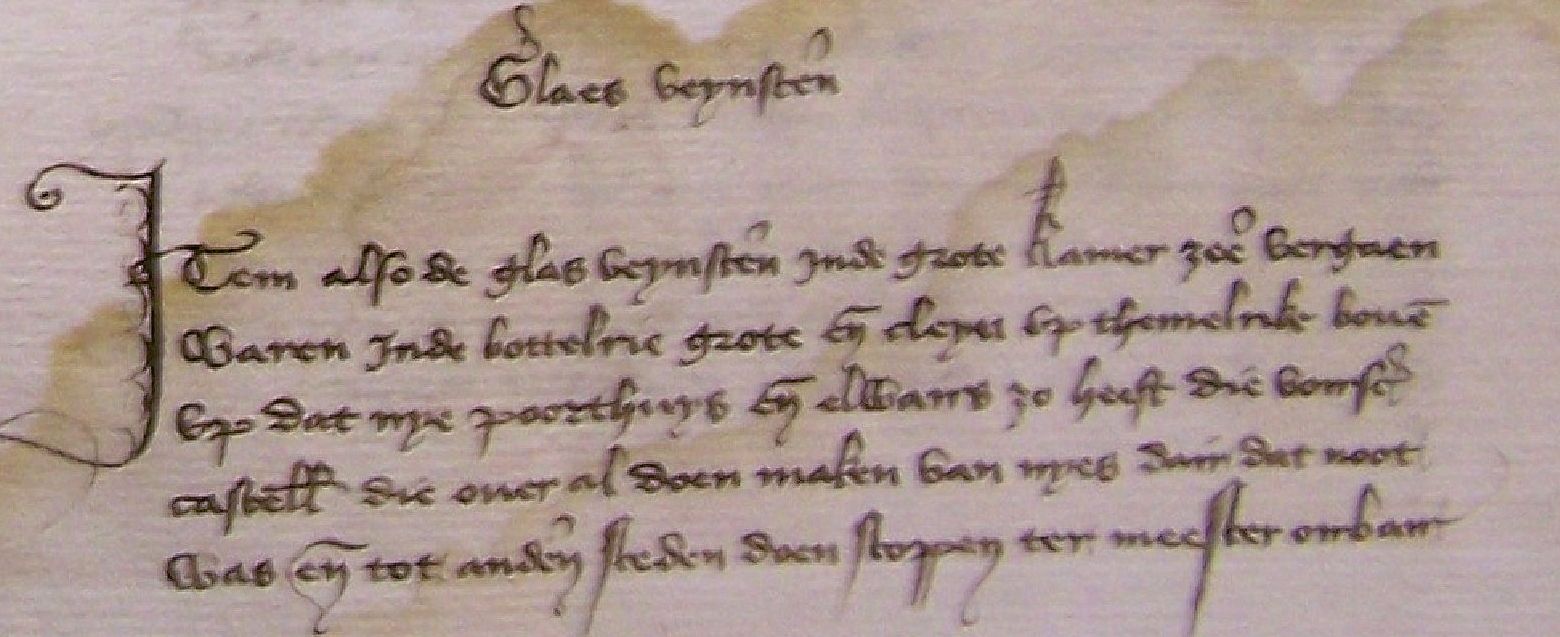 Glaes veynstẽn
Item also de glas veynstẽn jnde grote kamer zeẽ vergaen
Waren jnde bottelrie grote eñ cleyn vp themelrike bouẽ
vp dat nye poorthuys eñ elwars zo heeft die vorsc̃
castell die ouer al doen maken van nyes dair dat noot
Was eñ tot andẽn steden doen stoppen ter meester orbair